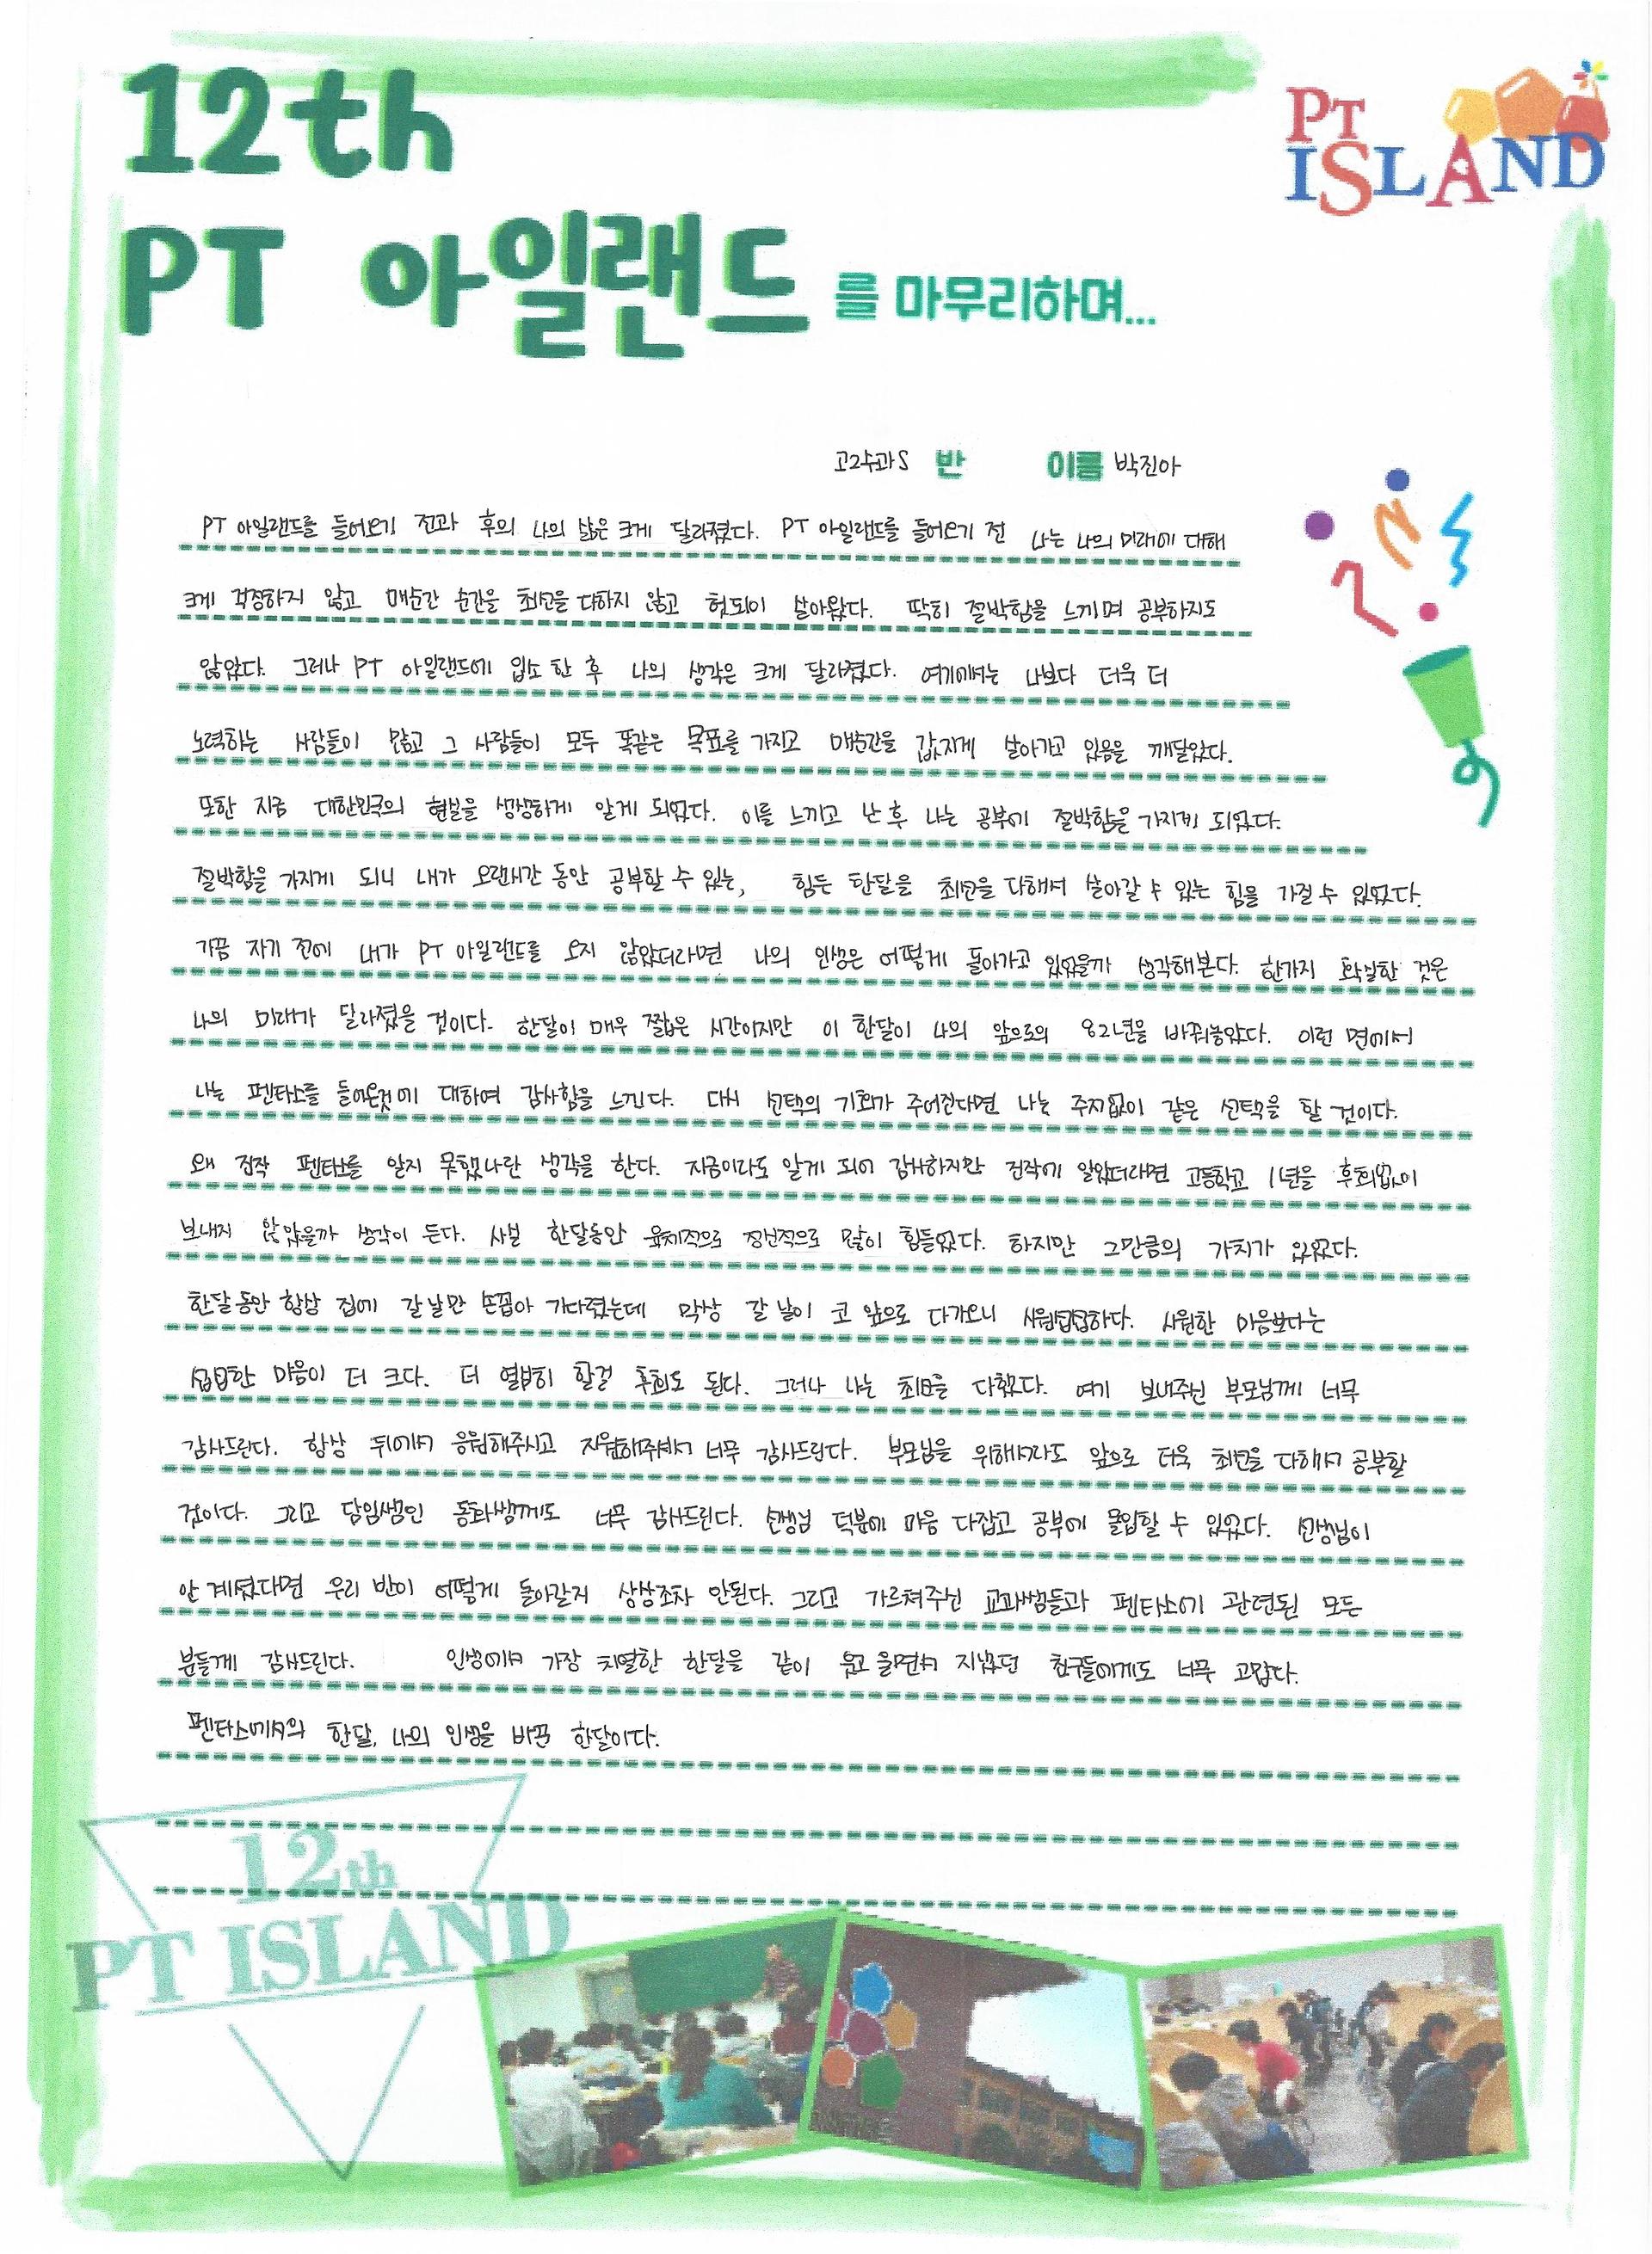 12th
PT ISLAND
PT 아일랜드를 마무리하며...
고2수과S 반 이름 박진아
PT 아일랜드를 들어오기 전과 후의 나의 삶은 크게 달라졌다. PT 아일랜드를 들어오기 전 나는 나의 미래에 대해
크게 걱정하지 않고 매순간 순간을 최선을 다하지 않고 헛되이 살아왔다. 딱히 절박함을 느끼며 공부하지도
않았다. 그러나 PT 아일랜드에 입소 한 후 나의 생각은 크게 달라졌다. 여기에서는 나보다 더욱 더
노력하는 사람들이 많고 그 사람들이 모두 똑같은 목표를 가지고 매순간을 값지게 살아가고 있음을 깨달았다.
또한 지금 대한민국의 현실을 생생하게 알게 되었다. 이를 느끼고 난 후 나는 공부에 절박함을 가지게 되었다.
절박함을 가지게 되니 내가 오랜시간 동안 공부할 수 있는, 힘든 한달을 최선을 다해서 살아갈 수 있는 힘을 가질 수 있었다.
가끔 자기 전에 내가 PT 아일랜드를 오지 않았더라면 나의 인생은 어떻게 돌아가고 있었을까 생각해본다. 한가지 확실한 것은
나의 미래가 달라졌을 것이다. 한달이 매우 짧은 시간이지만 이 한달이 나의 앞으로의 82년을 바꿔놓았다. 이런 면에서
나는 펜타스를 들어온것에 대하여 감사함을 느낀다. 다시 선택의 기회가 주어진다면 나는 주저없이 같은 선택을 할 것이다.
왜 진작 펜타스를 알지 못했나란 생각을 한다. 지금이라도 알게 되어 감사하지만 진작에 알았더라면 고등학교 1년을 후회없이
보내지 않았을까 생각이 든다. 사실 한달동안 육체적으로 정신적으로 많이 힘들었다. 하지만 그만큼의 가치가 있었다.
한달동안 항상 집에 갈 날만 손꼽아 기다렸는데 막상 갈 날이 코 앞으로 다가오니 시원섭섭하다. 시원한 마음보다는
섭섭한 마음이 더 크다. 더 열심히 할걸 후회도 된다. 그러나 나는 최선을 다했다. 여기 보내주신 부모님께 너무
감사드린다. 항상 뒤에서 응원해주시고 지원해주셔서 너무 감사드린다. 부모님을 위해서라도 앞으로 더욱 최선을 다해서 공부할
것이다. 그리고 담임쌤인 동화쌤께도 너무 감사드린다. 선생님 덕분에 마음 다잡고 공부에 몰입할 수 있었다. 선생님이
안 계셨다면 우리 반이 어떻게 돌아갈지 상상조차 안된다. 그리고 가르쳐주신 교과쌤들과 펜타스에 관련된 모든
분들께 감사드린다. 인생에서 가장 치열한 한달을 같이 웃고 울면서 지냈던 친구들에게도 너무 고맙다.
펜타스에서의 한달, 나의 인생을 바꾼 한달이다.
12th
PT ISLAND